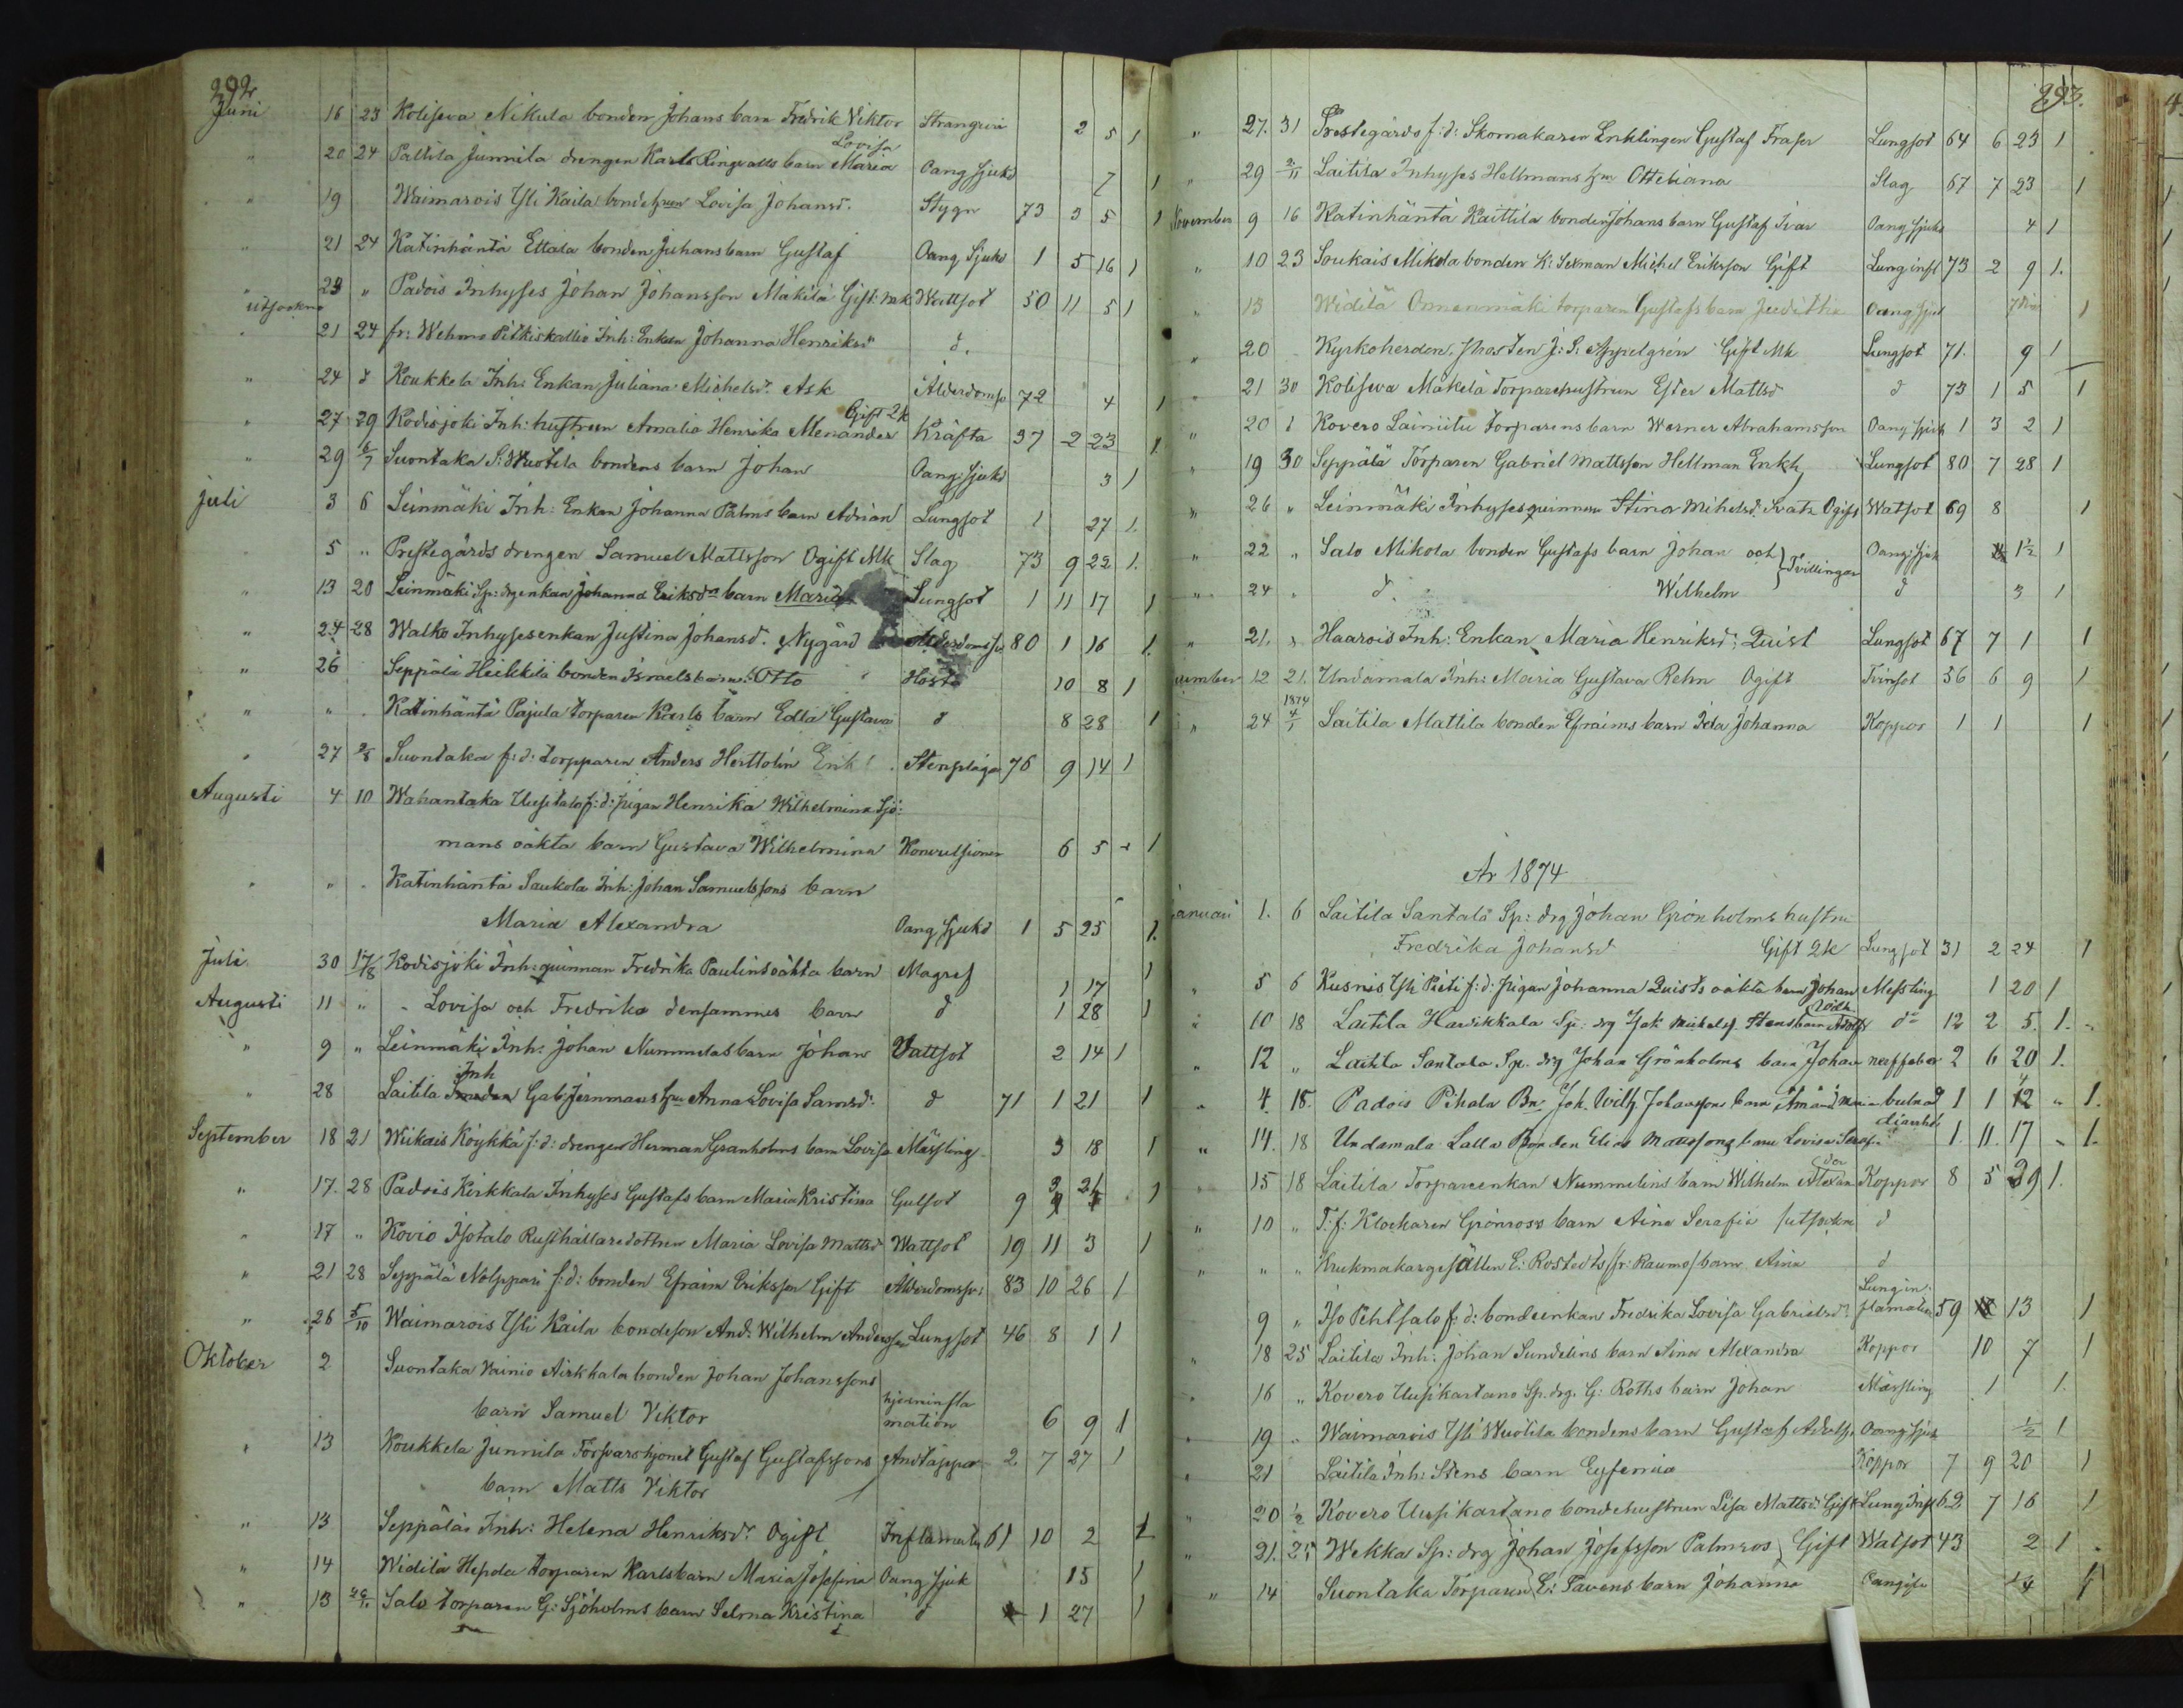 292
Juni 16 23 Kolifeva Nikula bonden Johans barn Fredrik Viktor Strangurie 2 5 1
" 20 24 Pattila Junnila drengen Karl Ringvalls barn Maria Lovisa Oang Sjukd 7 1
" 19 Waimarois Ylli Kaila bondehustrun Lovisa Johansd. Stygn 73 3 5 1
" 21 24 Katinhäntä Ettala bonden Johans barn Gustaf Oang Sjukd 1 5 16 1
" 23 " Padois Inhyses Johan Johansson Mäkilä Gift: Mk Wattsot 50 11 5 1
utsockne
" 21 24 fr: Wehmo Pitkiskallio Inh: Enkan Johanna Henriksd d.
" 24 d Koukkela Inh: Enkan Juliana Michelsd. Ask Ålderdoms 72 4 1
" 27 29 Kodisjoki Inh: hustrun Amalia Henrika Menander Gift 2k Kräfta 37 2 23 1
" 29 6/7 Suontaka S: Wuotila bondens barn Johan Oang: sjukd 3 1
Juli 3 6 Leinmäki Inh: Enkan Johanna Palms barn Adrian Lungsot 1 27 1
" 5 " Prestegårds drengen Samuel Mattsson Ogift Mk Slag 73 9 22 1.
" 13 20 Leinmäki Sp: drg enkan Johanna Eriksdrs barn Maria Lungsot 1 11 17 1
" 24 28 Walko Inhysesenkan Justina Johansd. Nygård Ålderdoms 80 1 16 1.
" 26 Seppälä Heikkilä bonden Israels barn Otto Hosta 10 8 1
" " Katinhäntä Pajula torparen Karls barn Edla Gustava d 8 28 1
" 27 2/8 Suontaka f: d: torpparen Anders Herttolin Enk Stenplåga 76 9 14 1
Augusti 4 10 Wahantaka Uusitalo f: d: pigan Henrika Wilhelmina Sjö-
mans oäkta barn Gustava Wilhelmina Konvulsioner 6 5 1
" " Katinhäntä Saukola Inh: Johan Samuelssons barn
Maria Alexandra Oang Sjukd 1 5 25 1.
Juli 30 17/8 Kodisjoki Inh: quinnan Fredrika Paulins oäkta barn Magref 1 17 1
Augusti 11 " Lovisa och Fredrika densammes barn d 1 28 1
" 9 " Leinmäki Inh: Johan Nummelas barn Johan Vattsot 2 14 1
" 28 Laitila Inh Gab: Jernmans hu Anna Lovisa Samsd. d 71 1 21 1
September 18 21 Wiikais Köykkä f: d: drengen Herman Granholms barn Lovisa Mässling 3 18 1
" 17. 28 Padois Kirkkala Inhyses Gustafs barn Maria Kristina Gulsot 9 3 21 1
" 17 " Kovio Isotalo Rusthållaredottren Maria Lovisa Mattsd Wattsot 19 11 3 1
" 21 28 Seppälä Nolppari f: d: bonden Efraim Eriksson Gift Ålderdomssv: 83 10 26 1
" 26 5/10 Waimarois Ylli Kaila bondeson And: Wilhelm Andersson Lungsot 46 8 1 1
Oktober 2 Suontaka Vainio Airkkala bonden Johan Johanssons
barn Samuel Viktor hjerninflamation 6 9 1
" 13 Koukkela Junnila Torparehjonet Gustaf Gustafssons Andtäppa 2 7 27 1
barn Matts Viktor
" 13 Seppälä Inh: Helena Henriksdr. Ogift Inflamation 61 10 2 1
" 14 Widilä Hepola torparen Karls barn Maria Josefina Oang sjuk 15 1
" 13 26/10 Salo torparen G: Sjöholms barn Selma Kristina d 1 27 1
293.
" 27. 31 Prestegårds f: d: Skomakaren Enklingen Gustaf Fraser Lungsot 64 6 23 1
" 29 2/11 Laitila Inhyses Hellmans hu Ottebiana Slag 67 7 23 1
November 9 16 Katinhäntä Kaittila bonden Johans barn Gustaf Ivar Oang sjukd 4 1
" 10 23 Soukais Mikola bonden K: Sexman Michel Eriksson Gift Lung infl 73 2 9 1.
" 13 Widilä Onnenmäki torparen Gustafs barn Juditha Oang sjuk 1
" 20 Kyrkoherden, Prosten J: S: Appelgrén Gift Mk Lungsot 71. 9 1
" 21 30 Kolisewa Mäkelä Torparehustrun Ester Mattsd d 73 1 5 1
" 20 d Kovero Läiniitu torparens barn Werner Abrahamsson Oang sjuk 1 3 2 1
" 19 30 Seppälä Torparen Gabriel Mattsson Hellman Enkl, Lungsot 80 7 28 1
" 26 " Leinmäki Inhysesquinnan Stina Mihelsd. Svatz Ogift Watsot 69 8 1
" 22 " Salo Mikola bonden Gustafs barn Johan och } Tvillingar Oang: sjuk 1 1/2 1
" 24 " d. Wilhelm d 3 1
" 21. " Haarois Inh: Enkan Maria Henriksd: Quist Lungsot 67 7 1 1
cember 12 21. Undamala Inh: Maria Gustava Rehn Ogift Tvinsot 36 6 9 1
1874
" 24 4/1 Laitila Mattila bonden Efraims barn Ida Johanna Koppor 1 1 1
År 1874
anuari 1. 6 Laitila Santala Sp: drg Johan Grönholms hustru
Fredrika Johansd Gift 2k Lungsot 31 2 24 1
" 5 6 Kusnis Yli Pieti f: d: pigan Johanna Quists oäkta barn Johan Messling 1 20 1
" 10 18 Laitila Haukkala Sp: drg Isak Michelss. Stens barn Wilh. Adolf do 12 2 5. 1.
" 12 " Laitila Santala Sp. drg Johan Grönholms barn Johan nerffeber 2 6 20 1.
" 4. 18. Padois Pihala Bn: Joh. Wilh Johanssons barn Amanda Maria bulnad 1 1 12 " 1.
" 14. 18 Undamala Lalla Bonden Elias Mattssons barn Lovisa Seraf. diarrhé 1. 11. 17 " 1.
" 15 18 Laitila Torpareenkan Nummelins barn Wilhelm Alexander Koppor 8 5 29 1.
" 10 " T: f: Klockaren Grönroos barn Aina Serafia /utsockne d
" " " Krukmakaregesällen E: Rostedts /fr: Raumo/ barn Aina d
" 9 " Iso Pehtsalo f: d: bondeenkan Fredrika Lovisa Gabrielsd. Lunginflamation 59 13 1
" 18 25 Laitila Inh: Johan Sundelins barn Aina Alexandra Koppor 10 7 1
" 16 " Kovero Uusikartano Sp. drg. G: Roths barn Johan Mässling 1 1.
" 19 " Waimarois Yli Wuolila bondens barn Gustaf Adolf Oang sjuk 1/2 1
" 21 Laitila Inh: Stens barn Eufemia Koppor 7 9 20 1
" 20 1/2 Kovero Uusikartano bondehustrun Lisa Mattsd: Gift Lung Infl 62 7 16 1
" 21. 25 Wekka Sp: drg Johan Josefsson Palmroos Gift Watsot 43 2 1
" 14 Suontaka Torparen E: Savens barn Johanna Oangifv 1/4 1